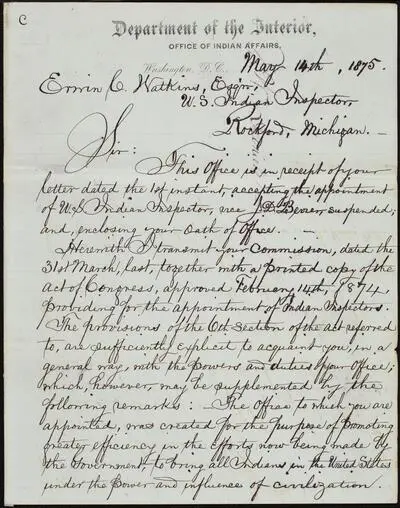 C
Department of the Interior,
OFFICE OF INDIAN AFFAIRS,
Washington, D.C., May 14th, 1875.
Erwin C. Watkins, Esqr.,
U.S. Indian Inspector,
Rockford, Michigan.—
Sir:
This Office is in receipt of your
letter dated the 1st instant, accepting the appointment
of U.S. Indian Inspector, vice J.D. Bevier, suspended;
and, enclosing your Oath of Office. —
Herewith I transmit your Commission, dated the
31st March, last, together with a printed copy of the
act of Congress, approved February 14th, 1874,
providing for the appointment of Indian Inspectors.
The provisions of the 6th Section of the act referred
to, are sufficiently explicit to acquaint you, in a
general way, with the powers and duties of your Office;
which, however, may be supplemented by the
following remarks: — The Office to which you are
appointed, was created for the purpose of promoting
greater efficiency in the efforts now being made by
the Government, to bring all Indians in the United States
under the power and influences of civilization.